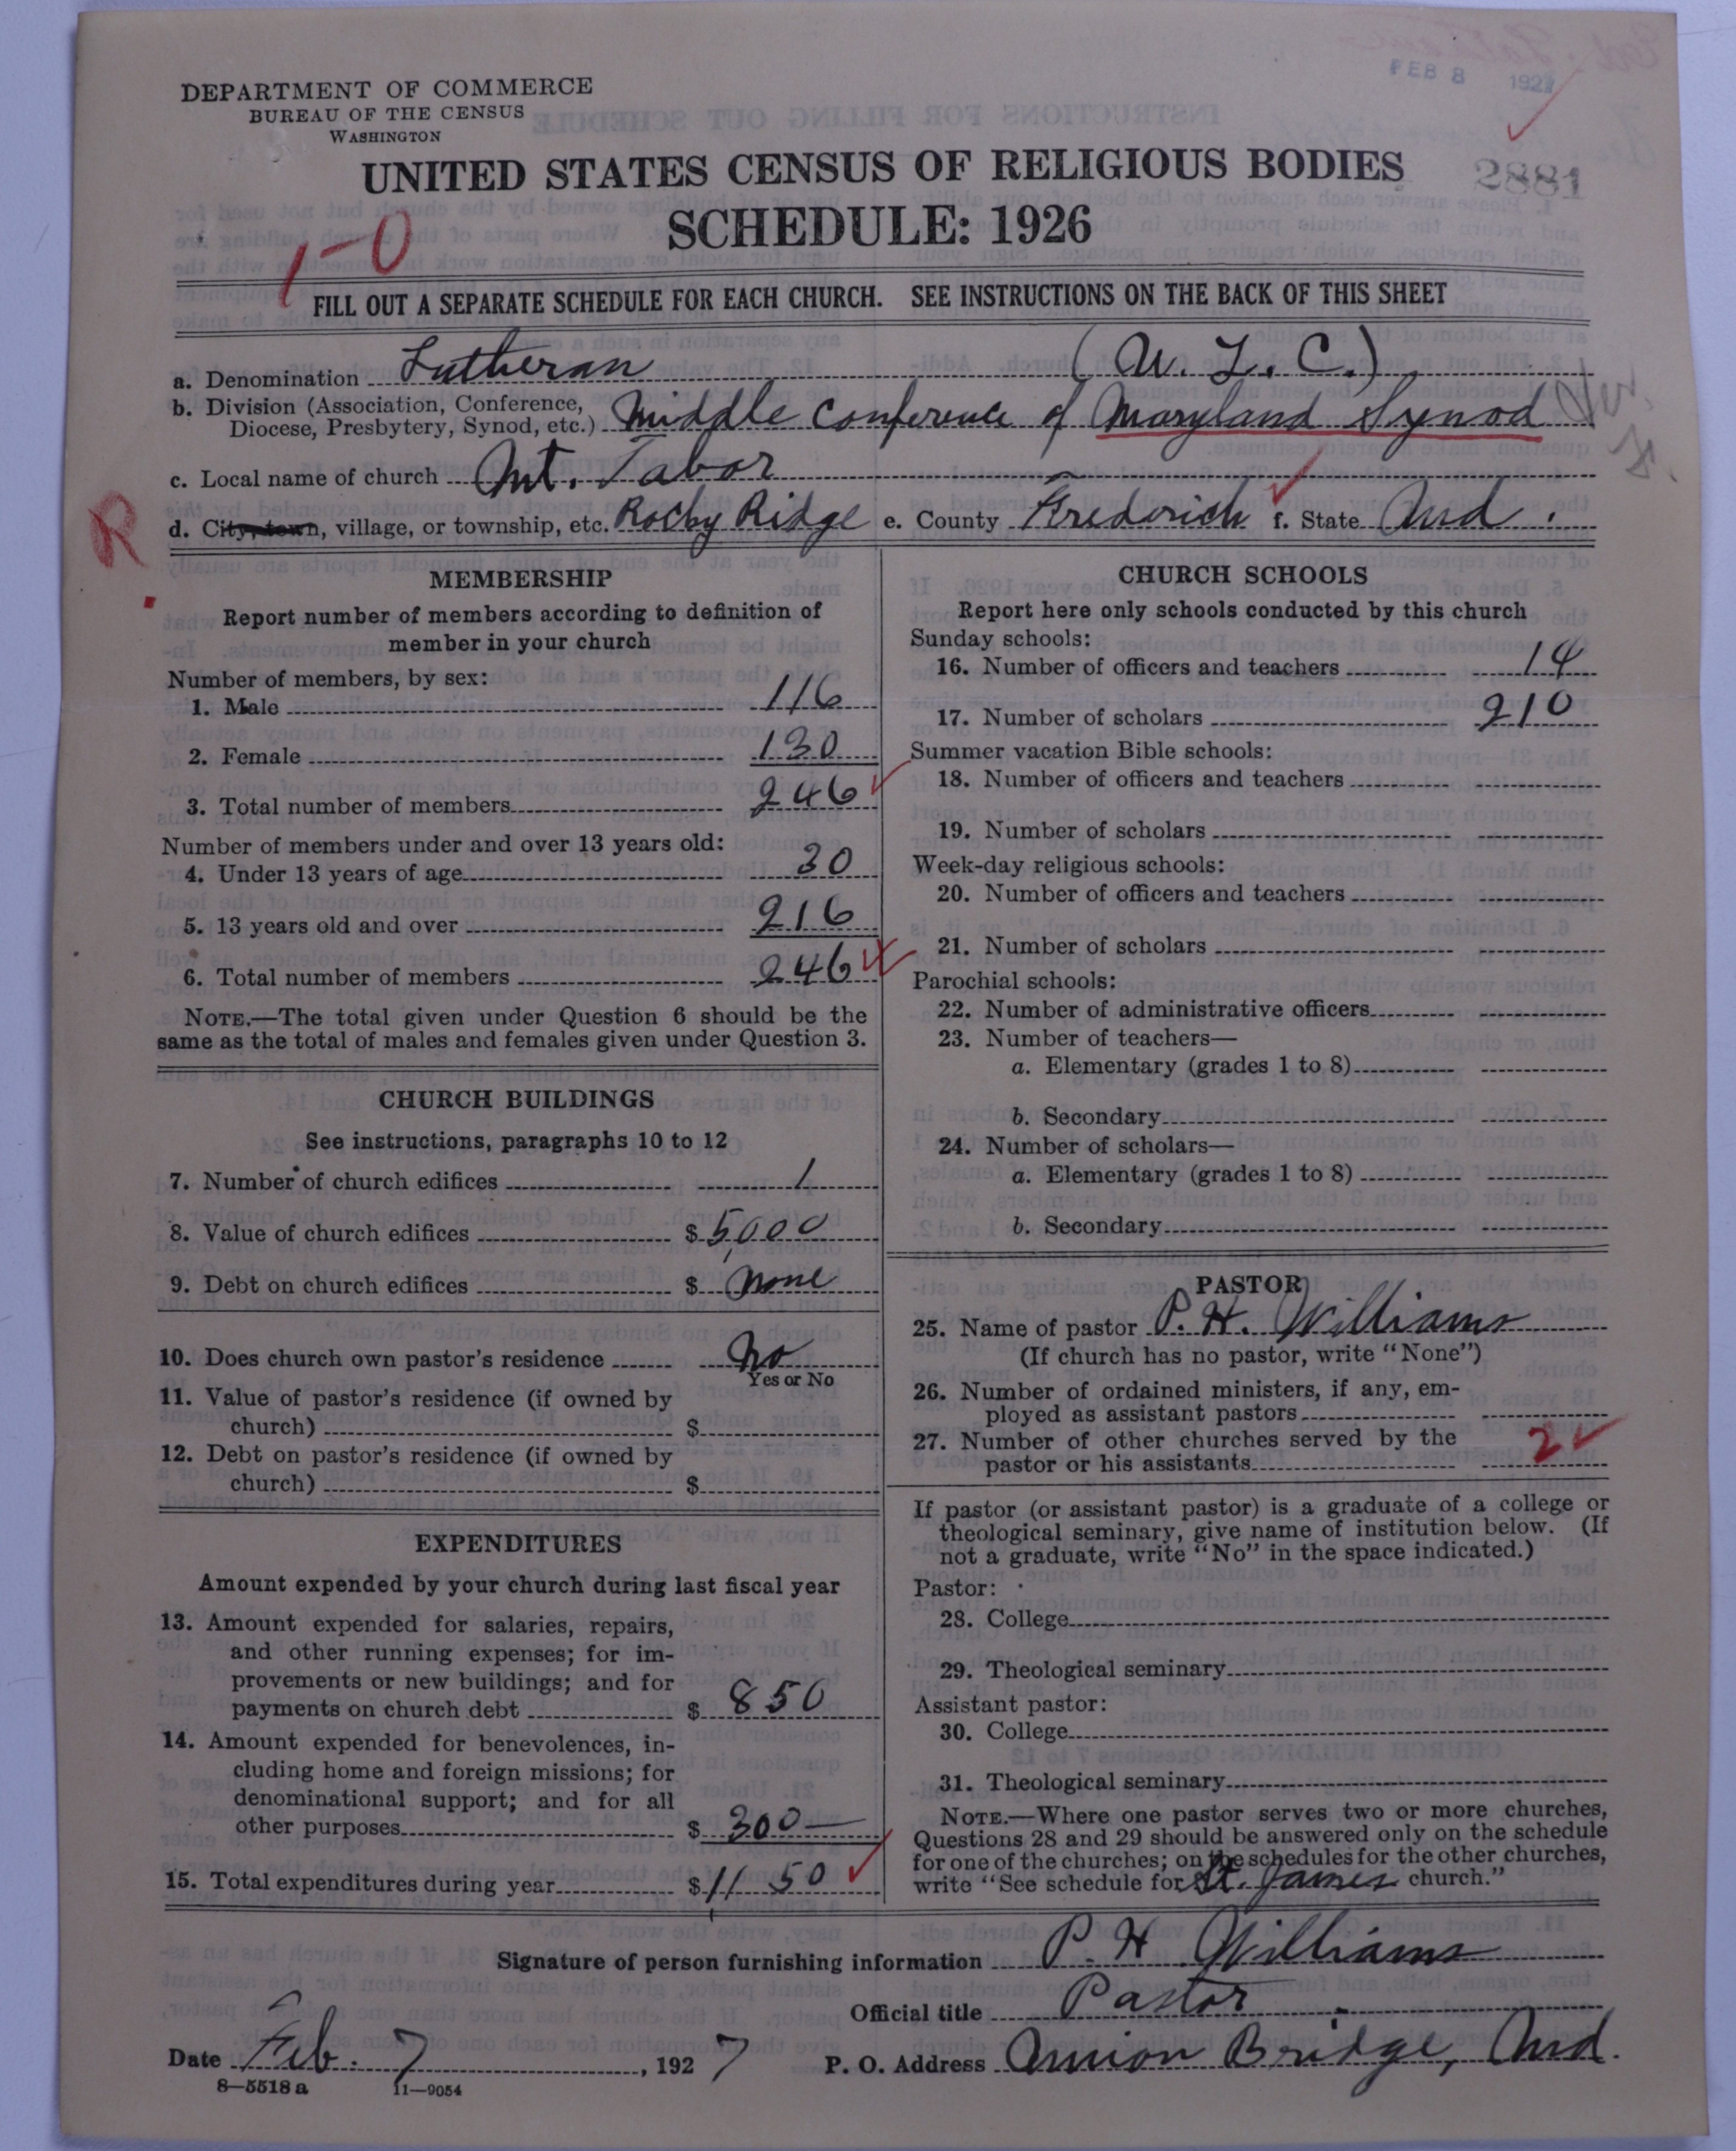 FEB 8 1927
DEPARTMENT OF COMMERCE
BUREAU OF THE CENSUS
WASHINGTON
UNITED STATES CENSUS OF RELIGIOUS BODIES
2881
SCHEDULE: 1926
1-0
FILL OUT A SEPARATE SCHEDULE FOR EACH CHURCH. SEE INSTRUCTIONS ON THE BACK OF THIS SHEET
a. Denomination Lutheran (U. L. C.)
b. Division (Association, Conference,
Diocese, Presbytery, Synod, etc.) Middle Conference of Maryland Synod
c. Local name of church Mt. Tabor
R
d. City, town, village, or township, etc. Rocky Ridge e. County Frederick f. State Md.
MEMBERSHIP
Report number of members according to definition of
member in your church
Number of members, by sex:
1. Male 116
2. Female 130
3. Total number of members 246
Number of members under and over 13 years old:
4. Under 13 years of age 30
5. 13 years old and over 216
6. Total number of members 246
NOTE.—The total given under Question 6 should be the
same as the total of males and females given under Question 3.
CHURCH BUILDINGS
See instructions, paragraphs 10 to 12
7. Number of church edifices 1
8. Value of church edifices $ 5,000
9. Debt on church edifices $ None
10. Does church own pastor's residence No
Yes or No
11. Value of pastor's residence (if owned by
church) $
12. Debt on pastor's residence (if owned by
church) $
EXPENDITURES
Amount expended by your church during last fiscal year
13. Amount expended for salaries, repairs,
and other running expenses; for im-
provements or new buildings; and for
payments on church debt $ 850
14. Amount expended for benevolences, in-
cluding home and foreign missions; for
denominational support; and for all
other purposes $ 300—
15. Total expenditures during year $ 1150
CHURCH SCHOOLS
Report here only schools conducted by this church
Sunday schools:
16. Number of officers and teachers 14
17. Number of scholars 210
Summer vacation Bible schools:
18. Number of officers and teachers
19. Number of scholars
Week-day religious schools:
20. Number of officers and teachers
21. Number of scholars
Parochial schools:
22. Number of administrative officers
23. Number of teachers—
a. Elementary (grades 1 to 8)
b. Secondary
24. Number of scholars—
a. Elementary (grades 1 to 8)
b. Secondary
PASTOR
25. Name of pastor P. H. Williams
(If church has no pastor, write "None")
26. Number of ordained ministers, if any, em-
ployed as assistant pastors
27. Number of other churches served by the
pastor or his assistants 2
If pastor (or assistant pastor) is a graduate of a college or
theological seminary, give name of institution below. (If
not a graduate, write "No" in the space indicated.)
Pastor:
28. College
29. Theological seminary
Assistant pastor:
30. College
31. Theological seminary
NOTE.—Where one pastor serves two or more churches,
Questions 28 and 29 should be answered only on the schedule
for one of the churches; on the schedules for the other churches,
write "See schedule for St. James church."
Signature of person furnishing information P. H. Williams
Official title Pastor
Date Feb. 7, 1927 P. O. Address Union Bridge, Md.
8—5518 a 11—9054